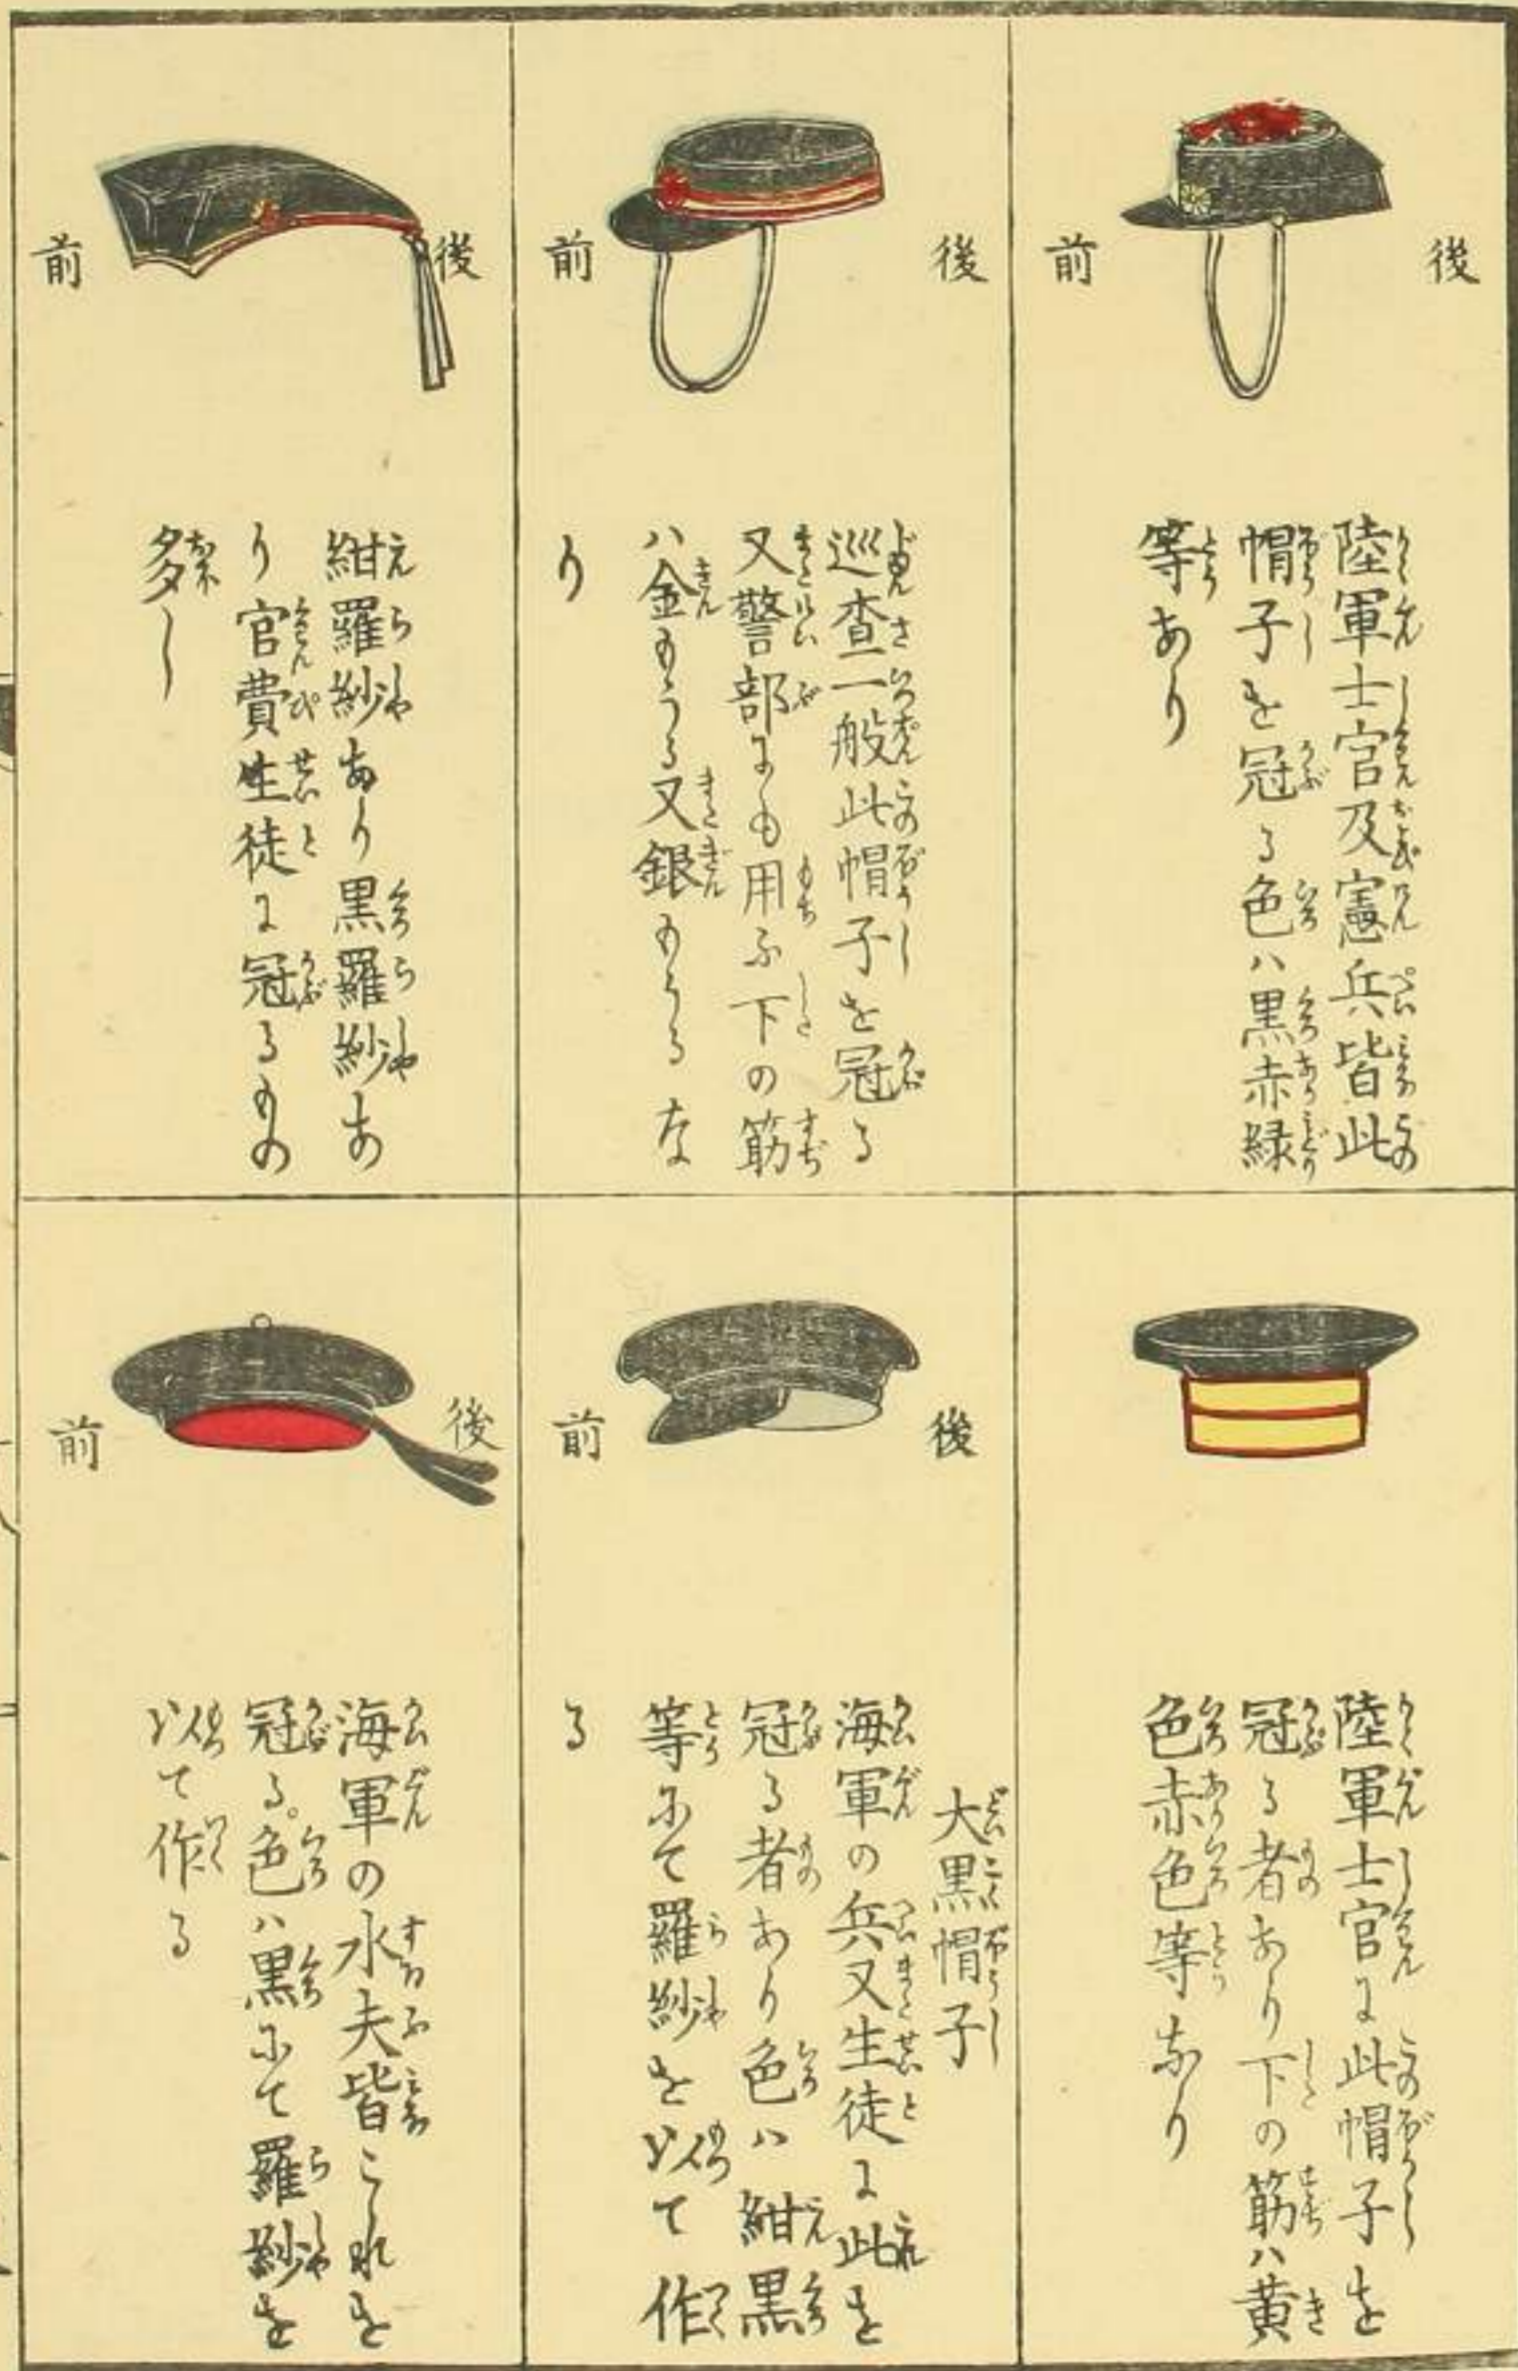 前
後
陸軍士官及憲兵皆此
帽子を冠る色ハ黒赤緑
等あり
前
後
巡査一般此帽子を冠る
又警部にも用ふ下の筋
ハ金もうる又銀もうるな
り
前
後
紺羅紗あり黒羅紗あ
り官費生徒に冠るもの
多し
陸軍士官に此帽子を
冠る者あり下の筋ハ黄
色赤色等なり
前
後
大黒帽子
海軍の兵又生徒に此を
冠る者あり色ハ紺黒
等にて羅紗を以て作
る
前
後
海軍の水夫皆これを
冠る。色ハ黒にて羅紗を
以て作る